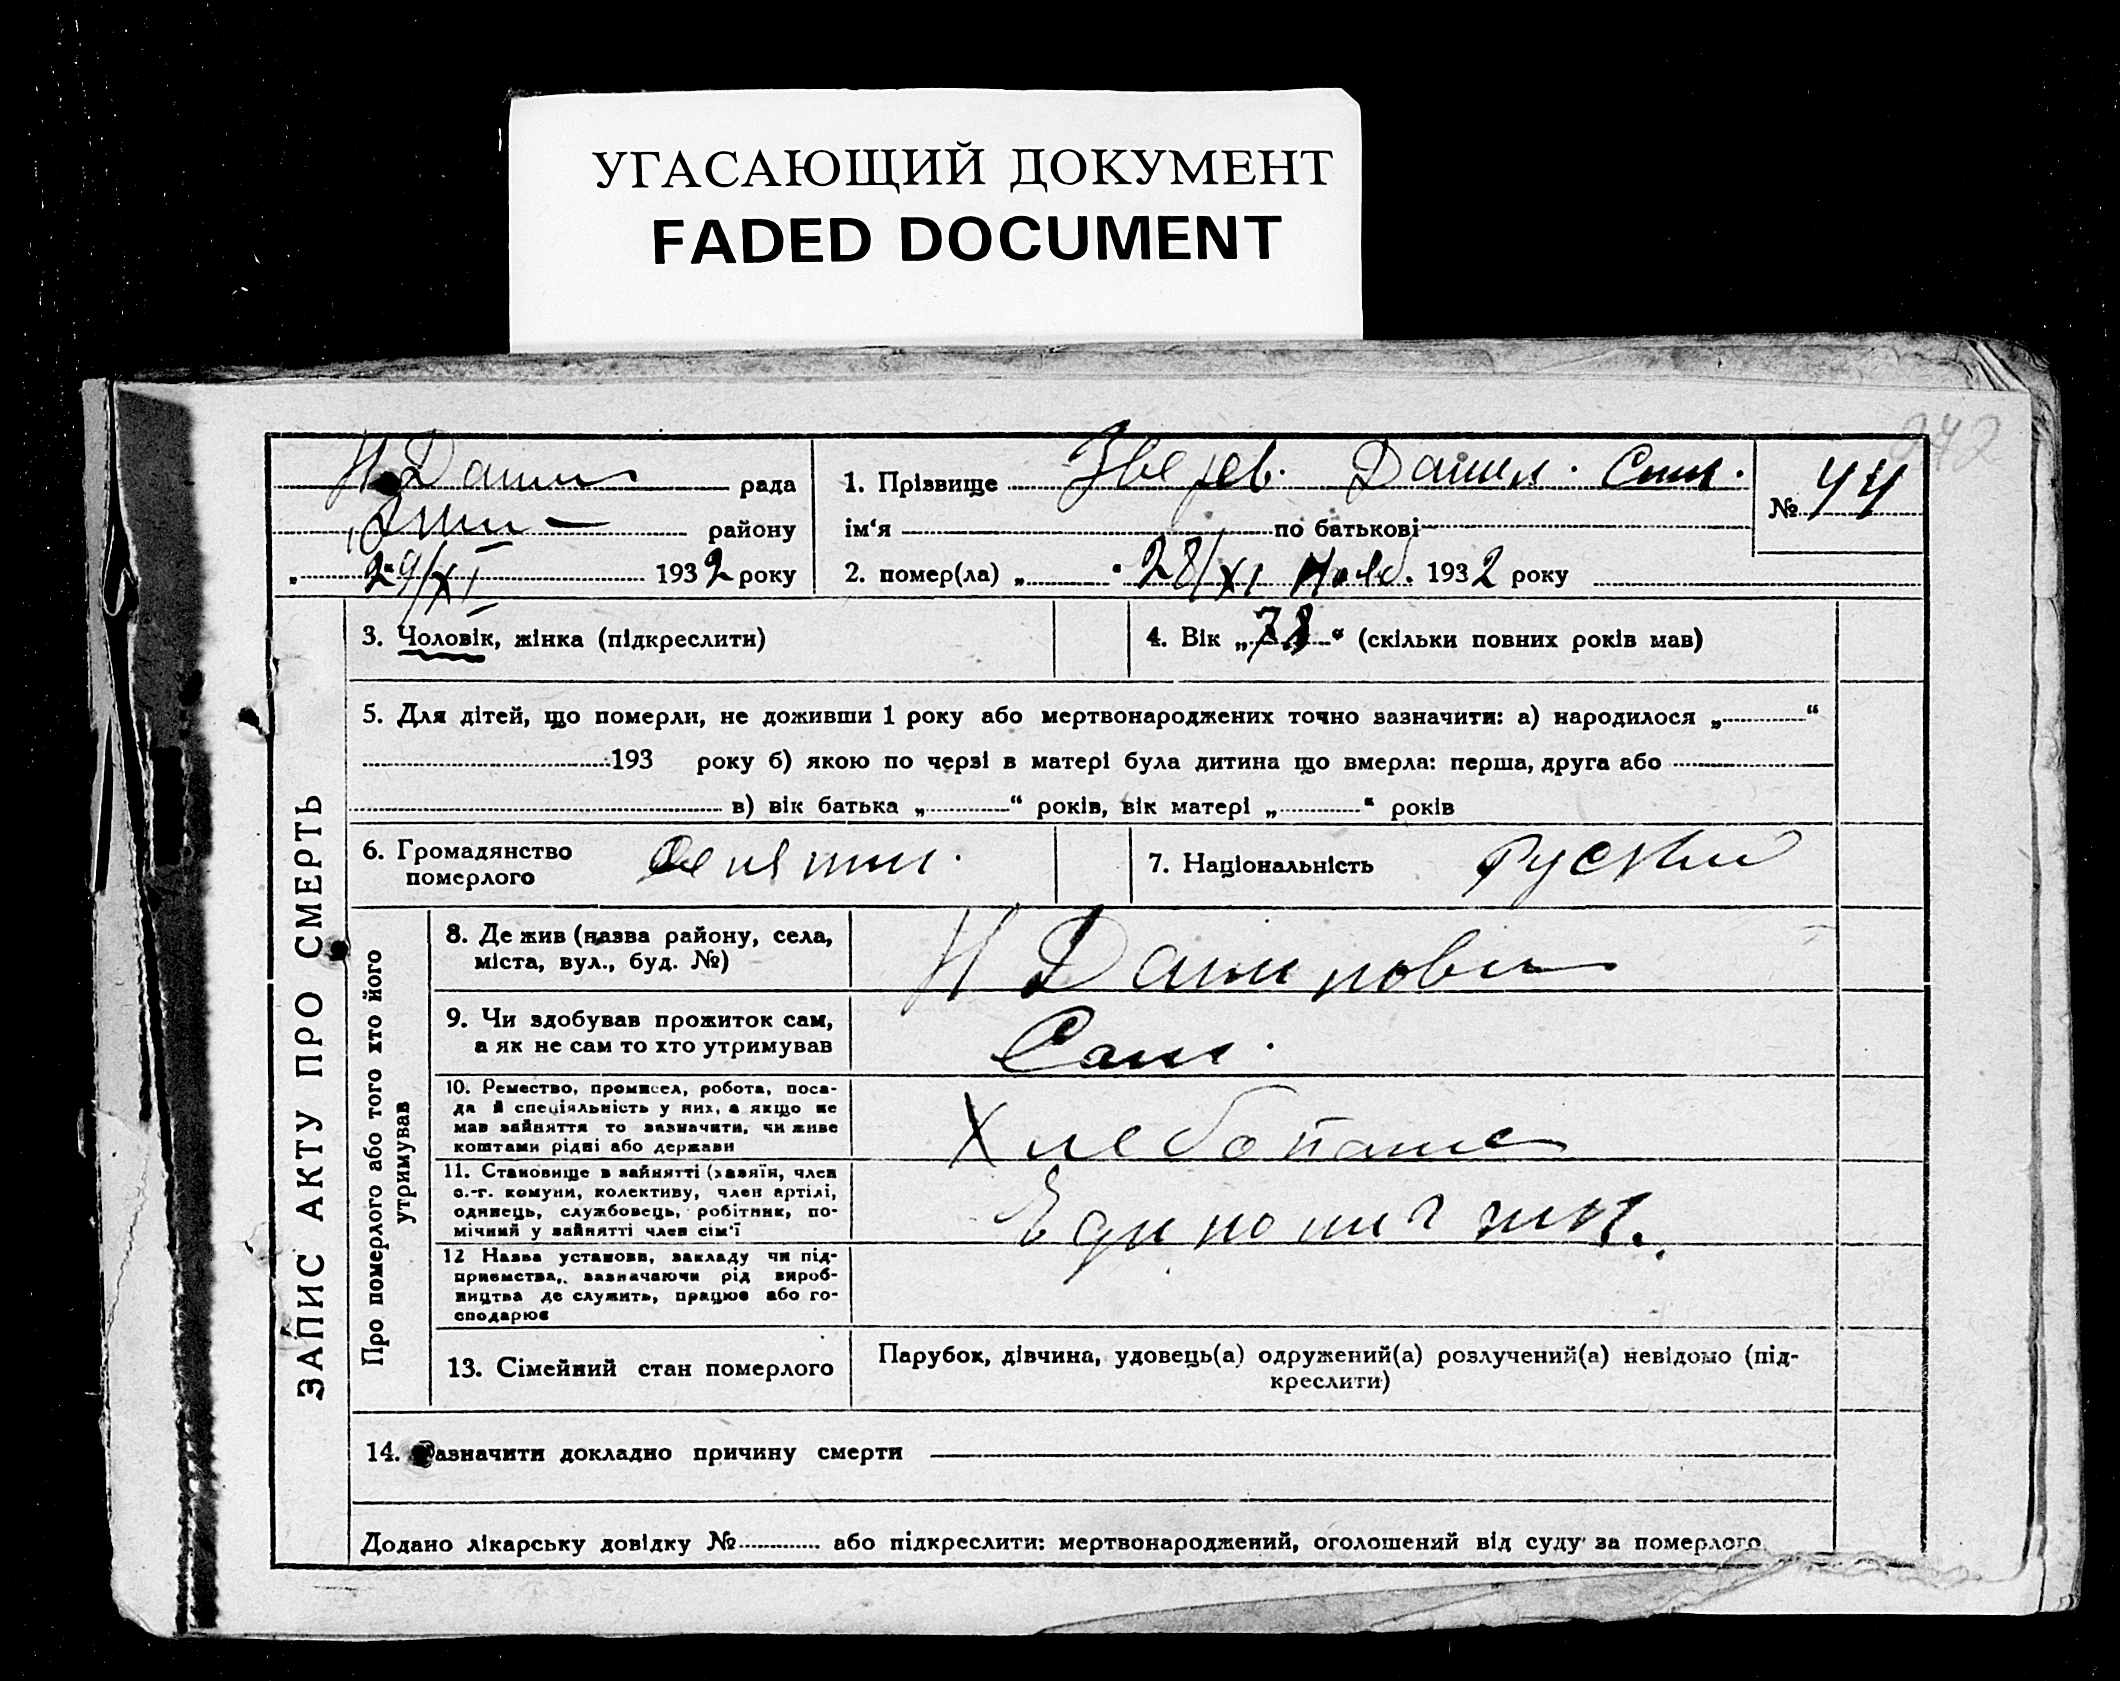 УГАСАЮЩИЙ ДОКУМЕНТ
FADED DOCUMENT
242
рада
району
„ 29/XI 1932 року
1. Прізвище Зверев. Данил.
ім‘я по батькові
2. помер(ла) „ “ 28/XI Нояб. 1932 року
№ 44
ЗАПИС АКТУ ПРО СМЕРТЬ
3. Чоловік, жінка (підкреслити)
4. Вік „78“ (скільки повних років мав)
5. Для дітей, що померли, не доживши 1 року або мертвонароджених точно зазначити: а) народилося „ “
193 року б) якою по черзі в матері була дитина що вмерла: перша, друга або
в) вік батька „ “ років, вік матері „ “ років
6. Громадянство
померлого
7. Національність Руский
Про померлого або того хто його
утримував
8. Де жив (назва району, села,
міста, вул., буд. №)
Н
9. Чи здобував прожиток сам,
а як не сам то хто утримував
Сам.
10. Ремество, промисел, робота, поса-
да й спеціяльність у них, а якщо не
мав зайняття то зазначити, чи живе
коштами рідні або держави
Хлебопаше
11. Становище в зайнятті (хазяїн, член
с.-г. комуни, колективу, член артілі,
одинець, службовець, робітник, по-
мічний у зайнятті член сім‘ї
Единолични.
12 Назва установи, закладу чи під-
приємства,. зазначаючи рід вироб-
ництва де служить, працює або го-
сподарює
13. Сімейний стан померлого
Парубок, дівчина, удовець(а) одружений(а) розлучений(а) невідомо (під-
креслити)
14. Зазначити докладно причину смерти
Додано лікарську довідку № або підкреслити: мертвонароджений, оголошений від суду за померлого